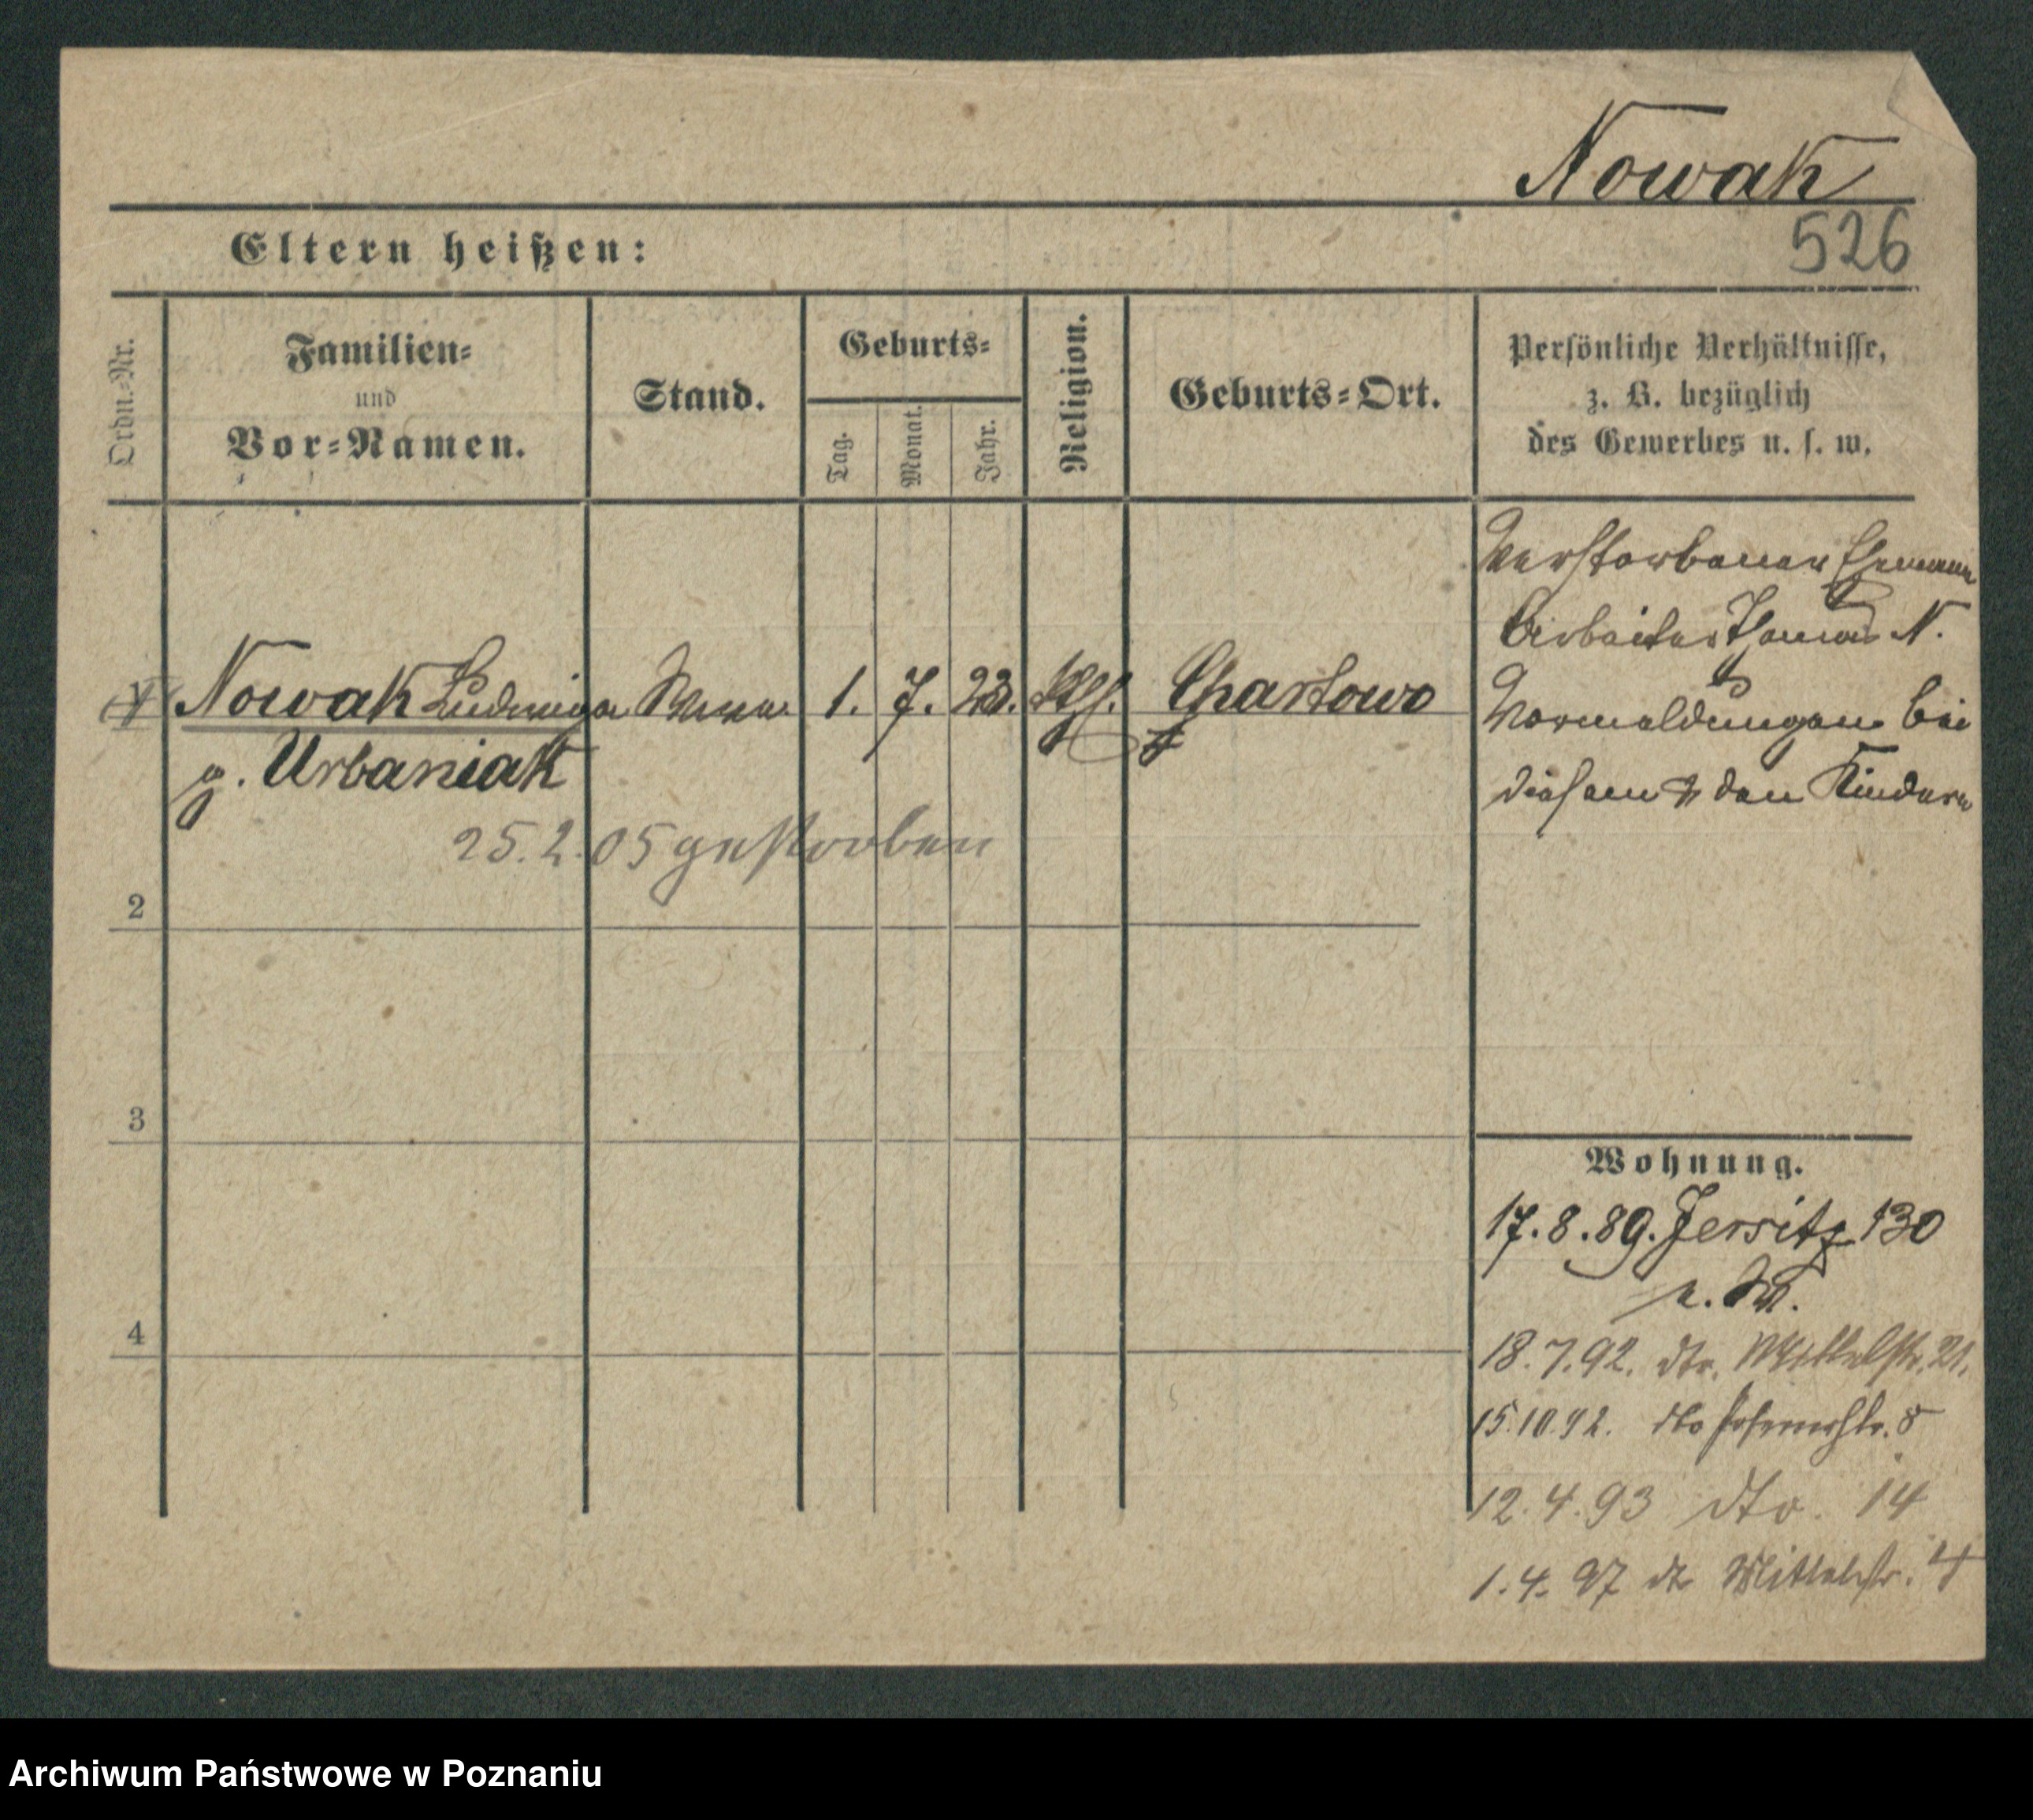 Nowak
526
Eltern heißen:
Ordn.-Nr.
Familien-
und
Vor-Namen.
Stand.
Geburts-
Tag.
Monat.
Jahr.
Religion.
Geburts-Ort.
Persönliche Verhältnisse,
z. B. bezüglich
des Gewerbes u. s. w.
1 Nowak Ludwiga Wwe. 1. 7. 23. Kth. Chartowo
g. Urbaniak
25.2.05 gestorben
2
3
4
Verstorbener Ehemann
Arbeiter Thomas N.
Vormeldungen bei
diesem & den Kindern
Wohnung.
17.8.89. Jersitz 130
18.7.92. dto. Mittelstr. 21.
15.10.92. dto Posenerstr. 8
12.4.93 dto. 14
1.4.97 dto Mittelstr. 4
Archiwum Państwowe w Poznaniu